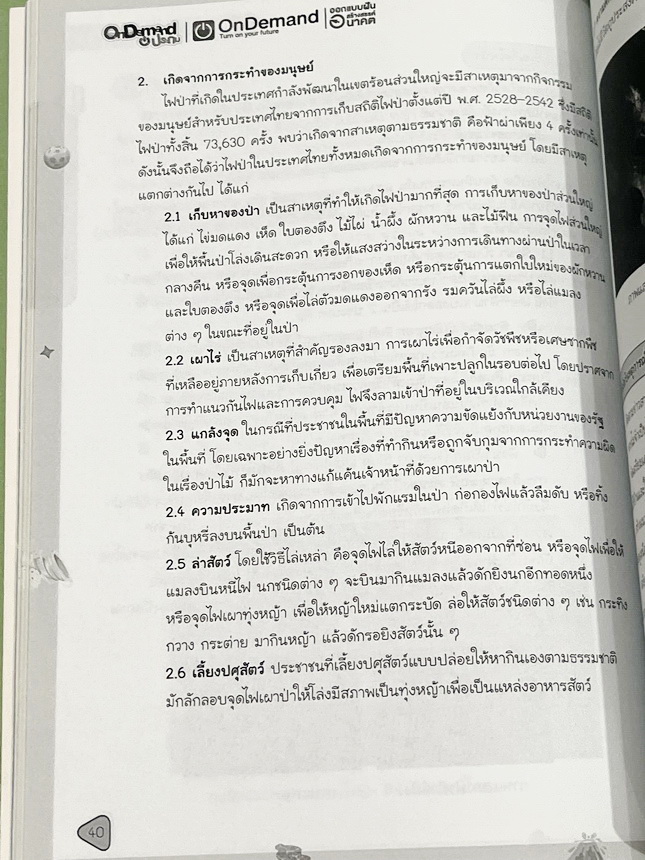 OnDemand ประถม | OnDemand Turn on your future | ออกแบบฝัน สร้างสรรค์ อนาคต
2. เกิดจากการกระทำของมนุษย์
ไฟป่าที่เกิดในประเทศกำลังพัฒนาในเขตร้อนส่วนใหญ่จะมีสาเหตุมาจากกิจกรรม
ของมนุษย์สำหรับประเทศไทยจากการเก็บสถิติไฟป่าตั้งแต่ปี พ.ศ. 2528-2542 ซึ่งมีสถิติ
ไฟป่าทั้งสิ้น 73,630 ครั้ง พบว่าเกิดจากสาเหตุตามธรรมชาติ คือฟ้าผ่าเพียง 4 ครั้งเท่านั้น
ดังนั้นจึงถือได้ว่าไฟป่าในประเทศไทยทั้งหมดเกิดจากการกระทำของมนุษย์ โดยมีสาเหตุ
แตกต่างกันไป ได้แก่
2.1 เก็บหาของป่า เป็นสาเหตุที่ทำให้เกิดไฟป่ามากที่สุด การเก็บหาของป่าส่วนใหญ่
ได้แก่ ไข่มดแดง เห็ด ใบตองตึง ไม้ไผ่ น้ำผึ้ง ผักหวาน และไม้ฟืน การจุดไฟส่วนใหญ่
เพื่อให้พื้นป่าโล่งเดินสะดวก หรือให้แสงสว่างในระหว่างการเดินทางผ่านป่าในเวลา
กลางคืน หรือจุดเพื่อกระตุ้นการงอกของเห็ด หรือกระตุ้นการแตกใบใหม่ของผักหวาน
และใบตองตึง หรือจุดเพื่อไล่ตัวมดแดงออกจากรัง รมควันไล่ผึ้ง หรือไล่แมลง
ต่าง ๆ ในขณะที่อยู่ในป่า
2.2 เผาไร่ เป็นสาเหตุที่สำคัญรองลงมา การเผาไร่เพื่อกำจัดวัชพืชหรือเศษซากพืช
ที่เหลืออยู่ภายหลังการเก็บเกี่ยว เพื่อเตรียมพื้นที่เพาะปลูกในรอบต่อไป โดยปราศจาก
การทำแนวกันไฟและการควบคุม ไฟจึงลามเข้าป่าที่อยู่ในบริเวณใกล้เคียง
2.3 แกล้งจุด ในกรณีที่ประชาชนในพื้นที่มีปัญหาความขัดแย้งกับหน่วยงานของรัฐ
ในพื้นที่ โดยเฉพาะอย่างยิ่งปัญหาเรื่องที่ทำกินหรือถูกจับกุมจากการกระทำความผิด
ในเรื่องป่าไม้ ก็มักจะหาทางแก้แค้นเจ้าหน้าที่ด้วยการเผาป่า
2.4 ความประมาท เกิดจากการเข้าไปพักแรมในป่า ก่อกองไฟแล้วลืมดับ หรือทิ้ง
ก้นบุหรี่ลงบนพื้นป่า เป็นต้น
2.5 ล่าสัตว์ โดยใช้วิธีไล่เหล่า คือจุดไฟไล่ให้สัตว์หนีออกจากที่ซ่อน หรือจุดไฟเพื่อให้
แมลงบินหนีไฟ นกชนิดต่าง ๆ จะบินมากินแมลงแล้วดักยิงนกอีกทอดหนึ่ง
หรือจุดไฟเผาทุ่งหญ้า เพื่อให้หญ้าใหม่แตกระบัด ล่อให้สัตว์ชนิดต่าง ๆ เช่น กระทิง
กวาง กระต่าย มากินหญ้า แล้วดักรอยิงสัตว์นั้น ๆ
2.6 เลี้ยงปศุสัตว์ ประชาชนที่เลี้ยงปศุสัตว์แบบปล่อยให้หากินเองตามธรรมชาติ
มักลักลอบจุดไฟเผาป่าให้โล่งมีสภาพเป็นทุ่งหญ้าเพื่อเป็นแหล่งอาหารสัตว์
40